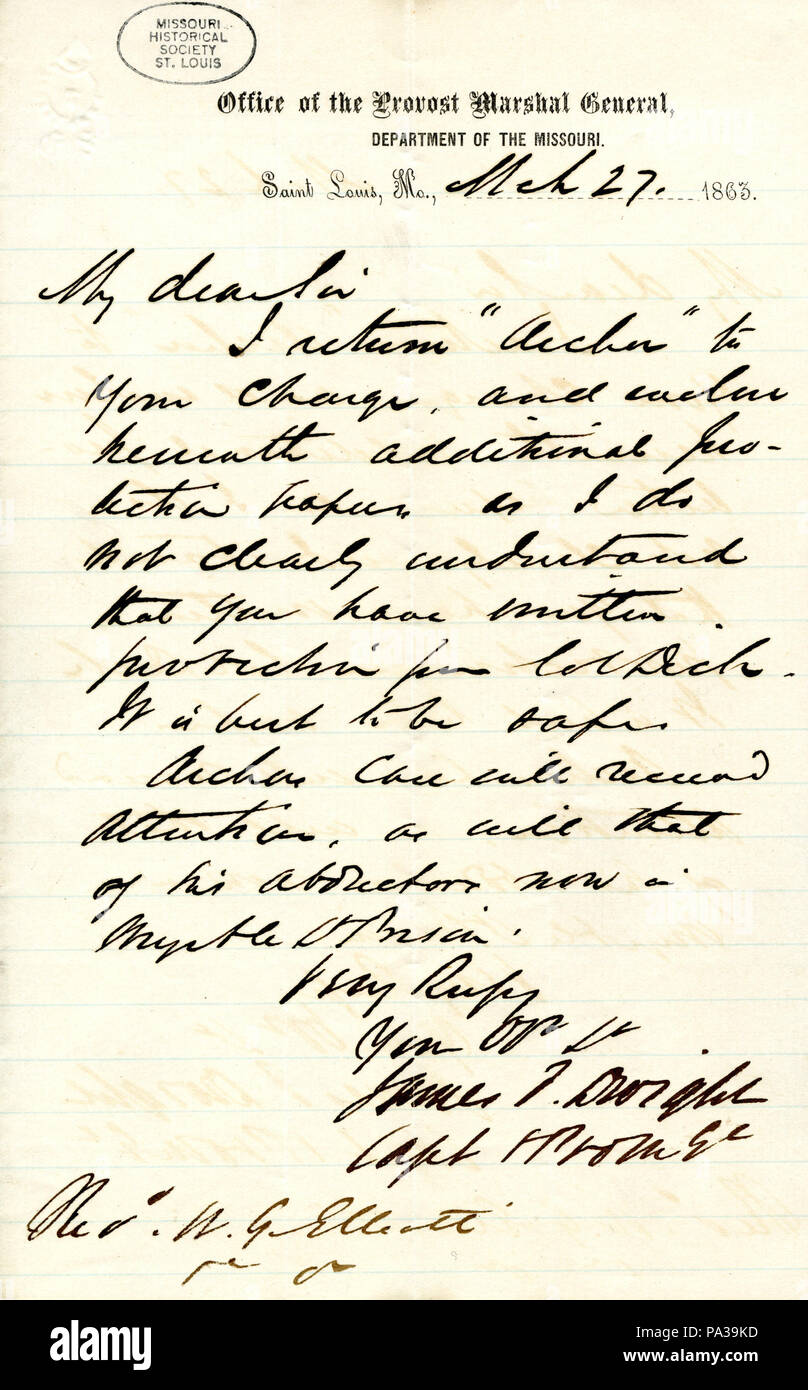 MISSOURI
HISTORICAL
SOCIETY
ST. LOUIS
Office of the Provost Marshal General,
DEPARTMENT OF THE MISSOURI.
Saint Louis, Mo., Mch 27. 1863.
My dear Sir
I return "Archer" to
your charge, and enclose
herewith additional pro-
tection papers as I do
not clearly understand
that you have written
protection from Col Dick.
It is best to be safe.
Archers case will receive
attention, as will that
of his abductors now in
Myrtle St Prison.
Very Respy
Your Obt St
James F. Dwight
Capt & Pro M Gl
Revd. W. G. Elliott
alamy
Image ID: PA39KD
www.alamy.com